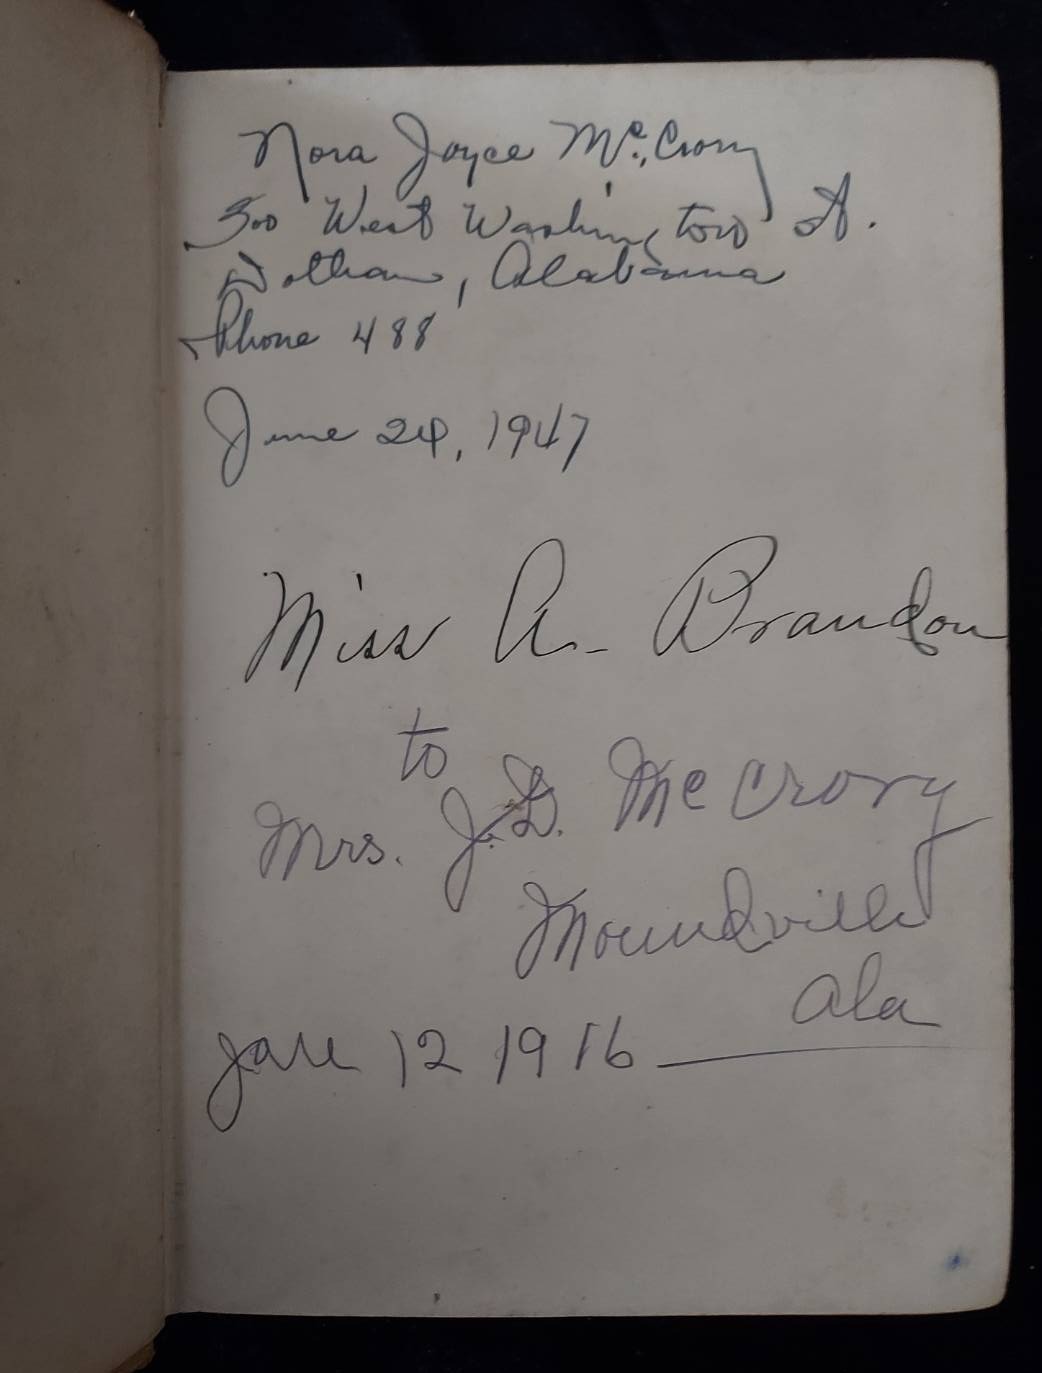 Nora Joyce McCrory
500 West Washington St.
Dothan, Alabama
Phone 488
June 24, 1947
Miss A. Brandon
to
Mrs. J.D. McCrory
Moundville
Ala
Jan 12 1916